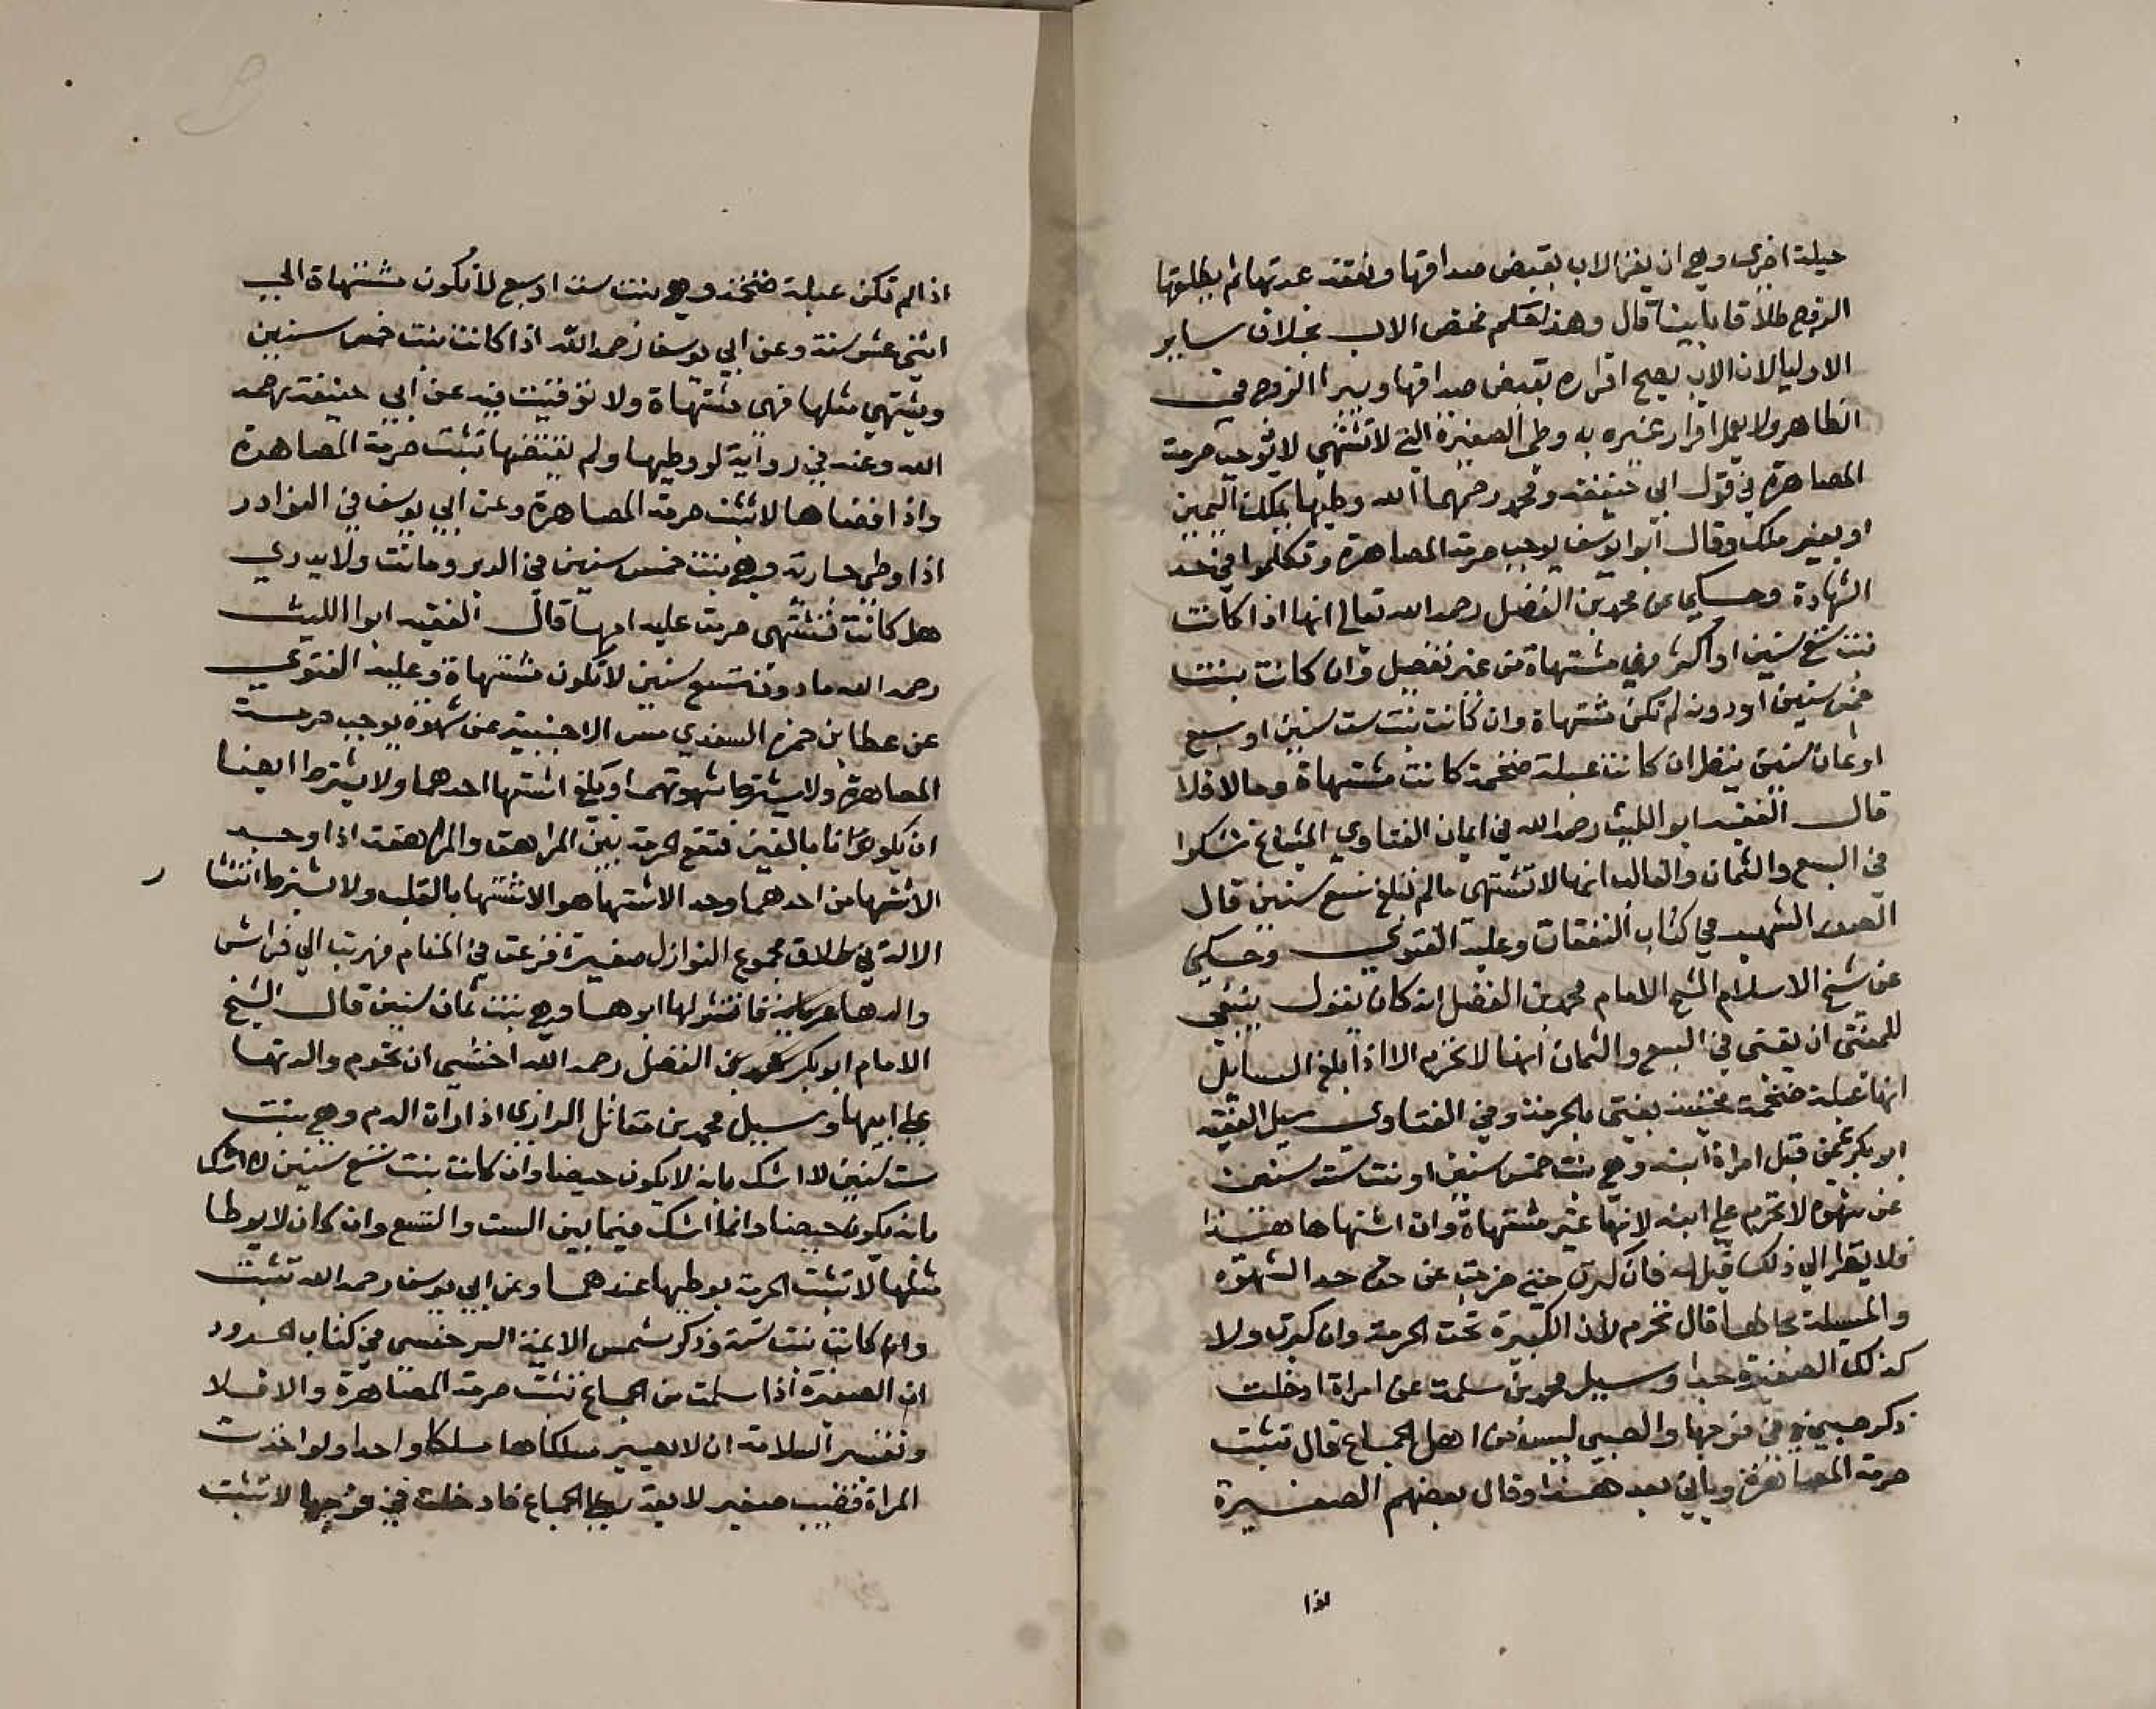 حيلة اخرى وهي ان يقر الاب بقبض صداقها ونفقة عدتها ثم يطلقها
الزوج طلاقا باينا قال وهذا حكم يختص الاب بخلاف ساير
الاوليا لان الاب يصح اقراره بقبض صداقها ويبرا الزوج في
الظاهر ولا يعمل اقرار غيره به وطئ الصغيرة التي لا تشتهي لا توجب حرمة
المصاهرة في قول ابي حنيفة ومحمد رحمهما الله وطيها بملك اليمين
او بغير ملك وقال ابو يوسف يوجب حرمة المصاهرة وتكلموا في حد
الشهادة وحكي عن محمد بن الفضل رحمه الله تعالى انها اذا كانت
بنت تسع سنين او اكثر فهي مشتهاة من غير تفصيل وان كانت بنت
خمس سنين او دونه لم تكن مشتهاة وان كانت بنت ست سنين او سبع
او ثمان سنين ينظر ان كانت عبلة ضخمة كانت مشتهاة ومالا فلا
قال الفقيه ابو الليث رحمه الله في ايمان الفتاوي المشايخ شكوا
في السبع والثمان والغالب انها لا تشتهي مالم تبلغ تسع سنين قال
الصدر الشهيد في كتاب النفقات وعليه الفتوى وحكي
عن شيخ الاسلام الشيخ الامام محمد بن الفضل انه كان يقول ينبغي
للمفتي ان يفتي في السبع والثمان انها لا تحرم الا اذا بلغ السايل
انها عبلة ضخمة فحينئذ يفتي بالحرمة وفي الفتاوى سيل الفقيه
ابو بكر عمن قبل امراة ابنه وهي بنت خمس سنين او بنت ست سنين
عن شهوة لا تحرم على ابنه لانها غير مشتهاة وان اشتهاها هذا
فلا ينظر الي ذلك قيل له فان كبرت حتى خرجت عن حد الشهوة
والمسيلة بحالها قال تحرم لان الكبيرة تحت الحرمة وان كبرت ولا
كذلك الصغيرة وسيل محمد بن سلمة عن امراة ادخلت
ذكر صبي في فرجها والصبي ليس من اهل الجماع قال تثبت
حرمة المصاهرة وياتي بعد هذا وقال بعضهم الصغيرة
اذا
اذا لم تكن عبلة ضخمة وهي بنت ست او سبع لا تكون مشتهاة الي
اثني عشر سنة وعن ابي يوسف رحمه الله اذا كانت بنت خمس سنين
ويشتهي مثلها فهي مشتهاة ولا توقيت فيه عن ابي حنيفة رحمه
الله وعنه في رواية لو وطيها ولم يفضها تثبت حرمة المصاهرة
واذا افضاها لا تثبت حرمة المصاهرة وعن ابي يوسف في النوادر
اذا وطي جارية وهي بنت خمس سنين في الدبر وماتت ولا يدري
هل كانت تشتهى حرمت عليه امها قال الفقيه ابو الليث
رحمه الله مادون تسع سنين لا تكون مشتهاة وعليه الفتوى
عن عطا بن حمزة السغدي مس الاجنبية عن شهوة يوجب حرمة
المصاهرة ولا يشترط شهوتهما ويكفي اشتها احدهما ولا يشترط ايضا
ان يكونا بالغين فتقع الحرمة بين المراهق والمراهقة اذا وجد
الاشتها من احدهما وحد الاشتها هو الاشتها بالقلب ولا يشترط انتشا ر
الالة في طلاق مجموع النوازل صغيرة فزعت في المنام فهربت الي فراش
والدها فانتشر لها ابوها وهي بنت ثمان سنين قال الشيخ
الامام ابو بكر محمد بن الفضل رحمه الله اخشى ان تحرم والدتها
على ابيها وسيل محمد بن مقاتل الرازي اذا رات الدم وهي بنت
ست سنين لا اشك بانه لا يكون حيضا وان كانت بنت تسع سنين لا اشك
بانه يكون حيضا وانما اشك فيما بين الست والتسع وان كان لا يوطا
مثلها لا تثبت الحرمة بوطيها عندهما وعن ابي يوسف رحمه الله تثبت
وان كانت بنت ستة وذكر شمس الايمة السرخسي في كتاب الحدود
ان الصغيرة اذا سلمت من الجماع تثبت حرمة المصاهرة والا فلا
وتفسير السلامة ان لا يصير مسلكاها مسلكا واحدا ولو اخذت
المراة قضيب صغير لا يقدر على الجماع فادخلت في فرجها لا تثبت